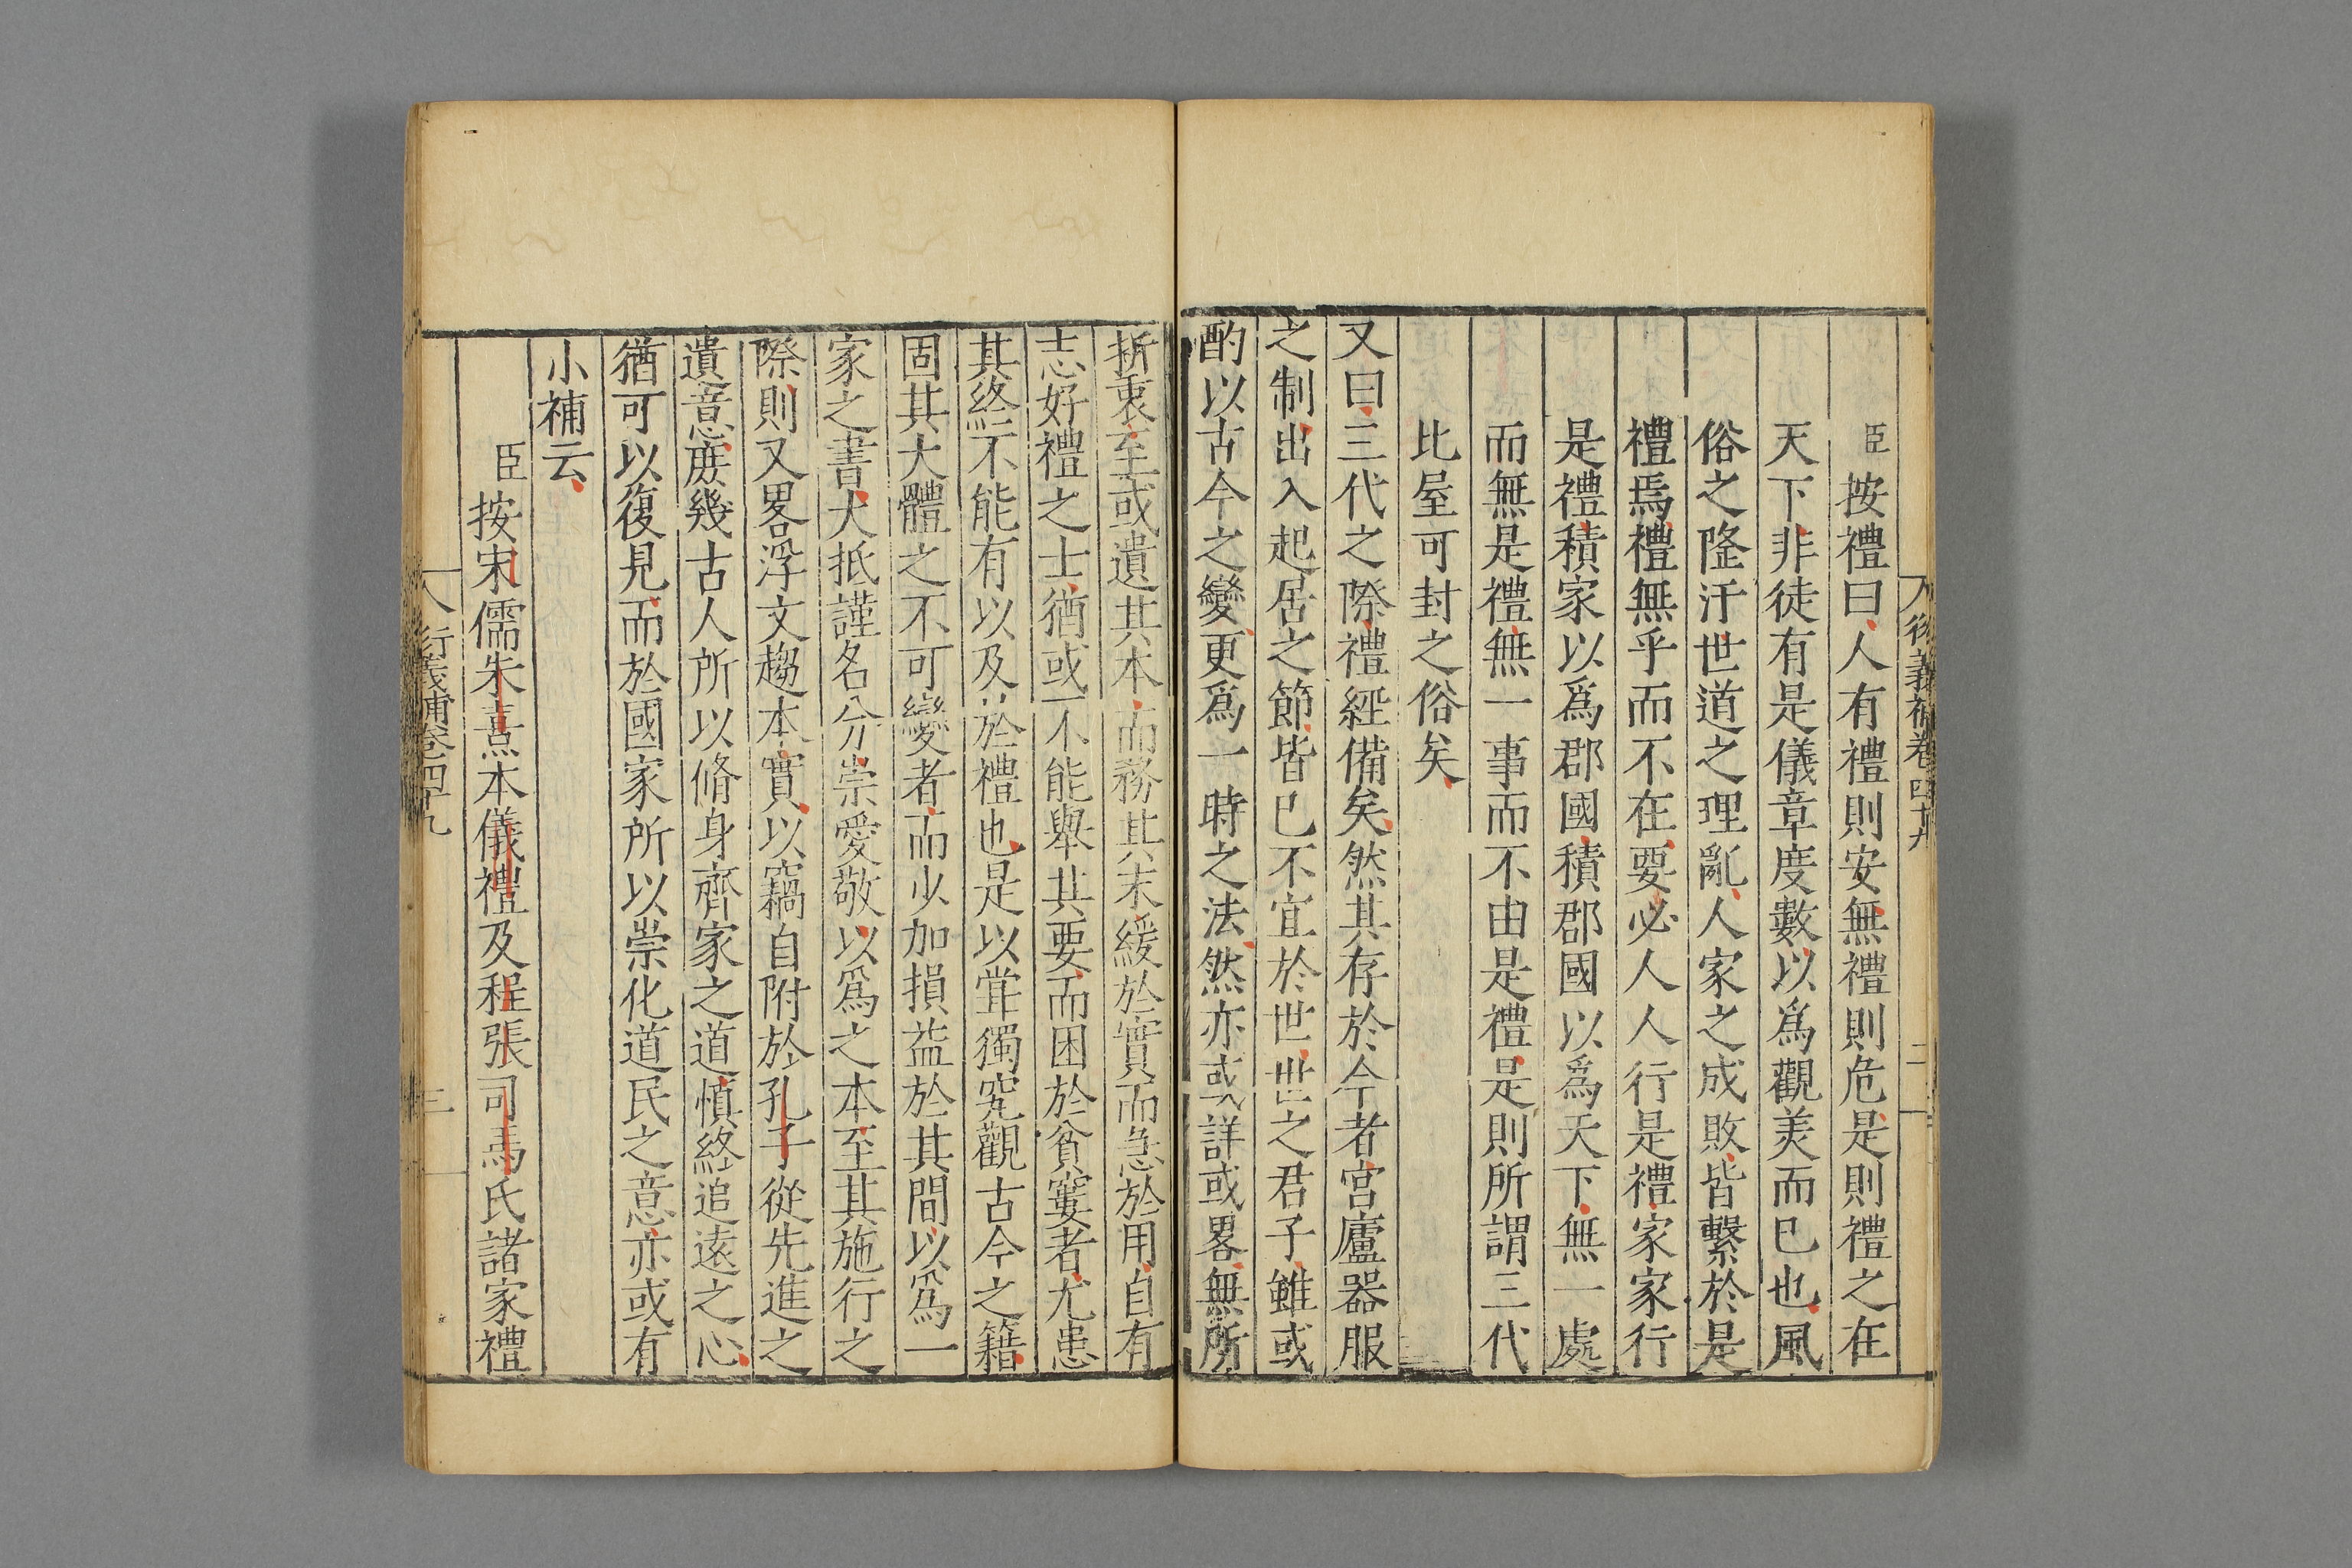 衍義補卷四十九
二
臣按禮曰人有禮則安無禮則危是則禮之在
天下非徒有是儀章度數以爲觀美而已也風
俗之隆汙世道之理亂人家之成敗皆繫於是
禮焉禮無乎而不在要必人人行是禮家家行
是禮積家以爲郡國積郡國以爲天下無一處
而無是禮無一事而不由是禮是則所謂三代
比屋可封之俗矣
又曰三代之際禮經備矣然其存於今者宮廬器服
之制出入起居之節皆已不宜於世世之君子雖或
酌以古今之變更爲一時之法然亦或詳或畧無所
折衷至或遺其本而務其末緩於實而急於用自有
志好禮之士猶或不能舉其要而困於貧窶者尤患
其終不能有以及於禮也是以甞獨究觀古今之籍
固其大體之不可變者而少加損益於其間以爲一
家之書大抵謹名分崇愛敬以爲之本至其施行之
際則又畧浮文趨本實以竊自附於孔子從先進之
遺意庶幾古人所以脩身齊家之道愼終追遠之心
猶可以復見而於國家所以崇化道民之意亦或有
小補云
臣按宋儒朱熹本儀禮及程張司馬氏諸家禮
衍義補卷四十九
三